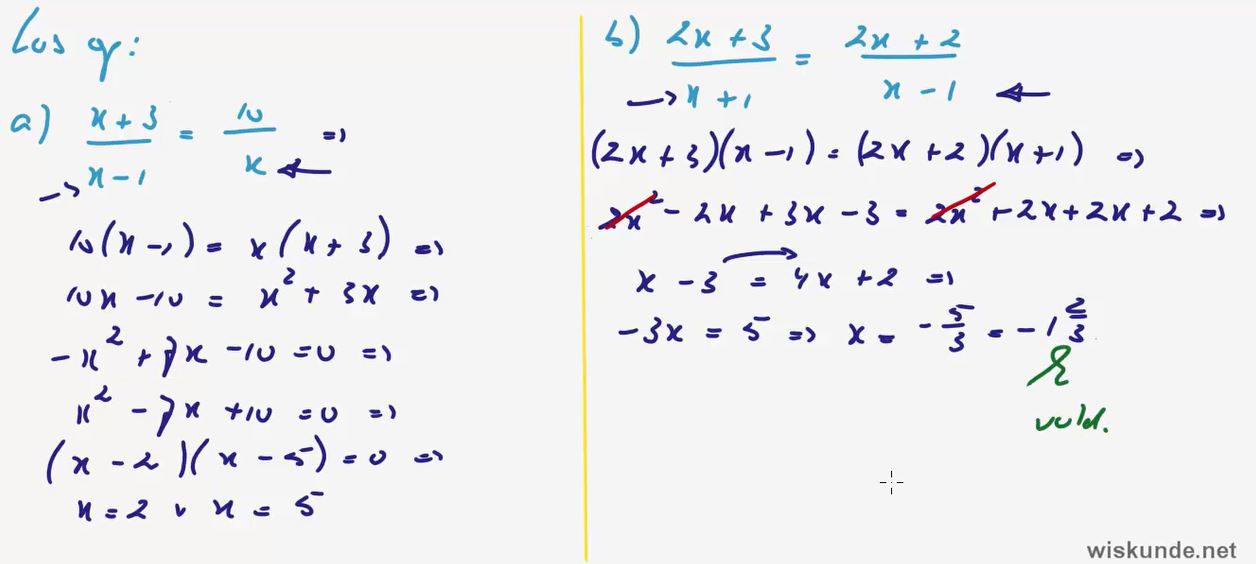 Los op:
a) x + 3 / x - 1 = 10 / x =>
10(x - 1) = x(x + 3) =>
10x - 10 = x² + 3x =>
-x² + 7x - 10 = 0 =>
x² - 7x + 10 = 0 =>
(x - 2)(x - 5) = 0 =>
x = 2 v x = 5
b) 2x + 3 / x + 1 = 2x + 2 / x - 1
(2x + 3)(x - 1) = (2x + 2)(x + 1) =>
2x² - 2x + 3x - 3 = 2x² + 2x + 2x + 2 =>
x - 3 = 4x + 2 =>
-3x = 5 => x = -5/3 = -1 2/3
vold.
wiskunde.net